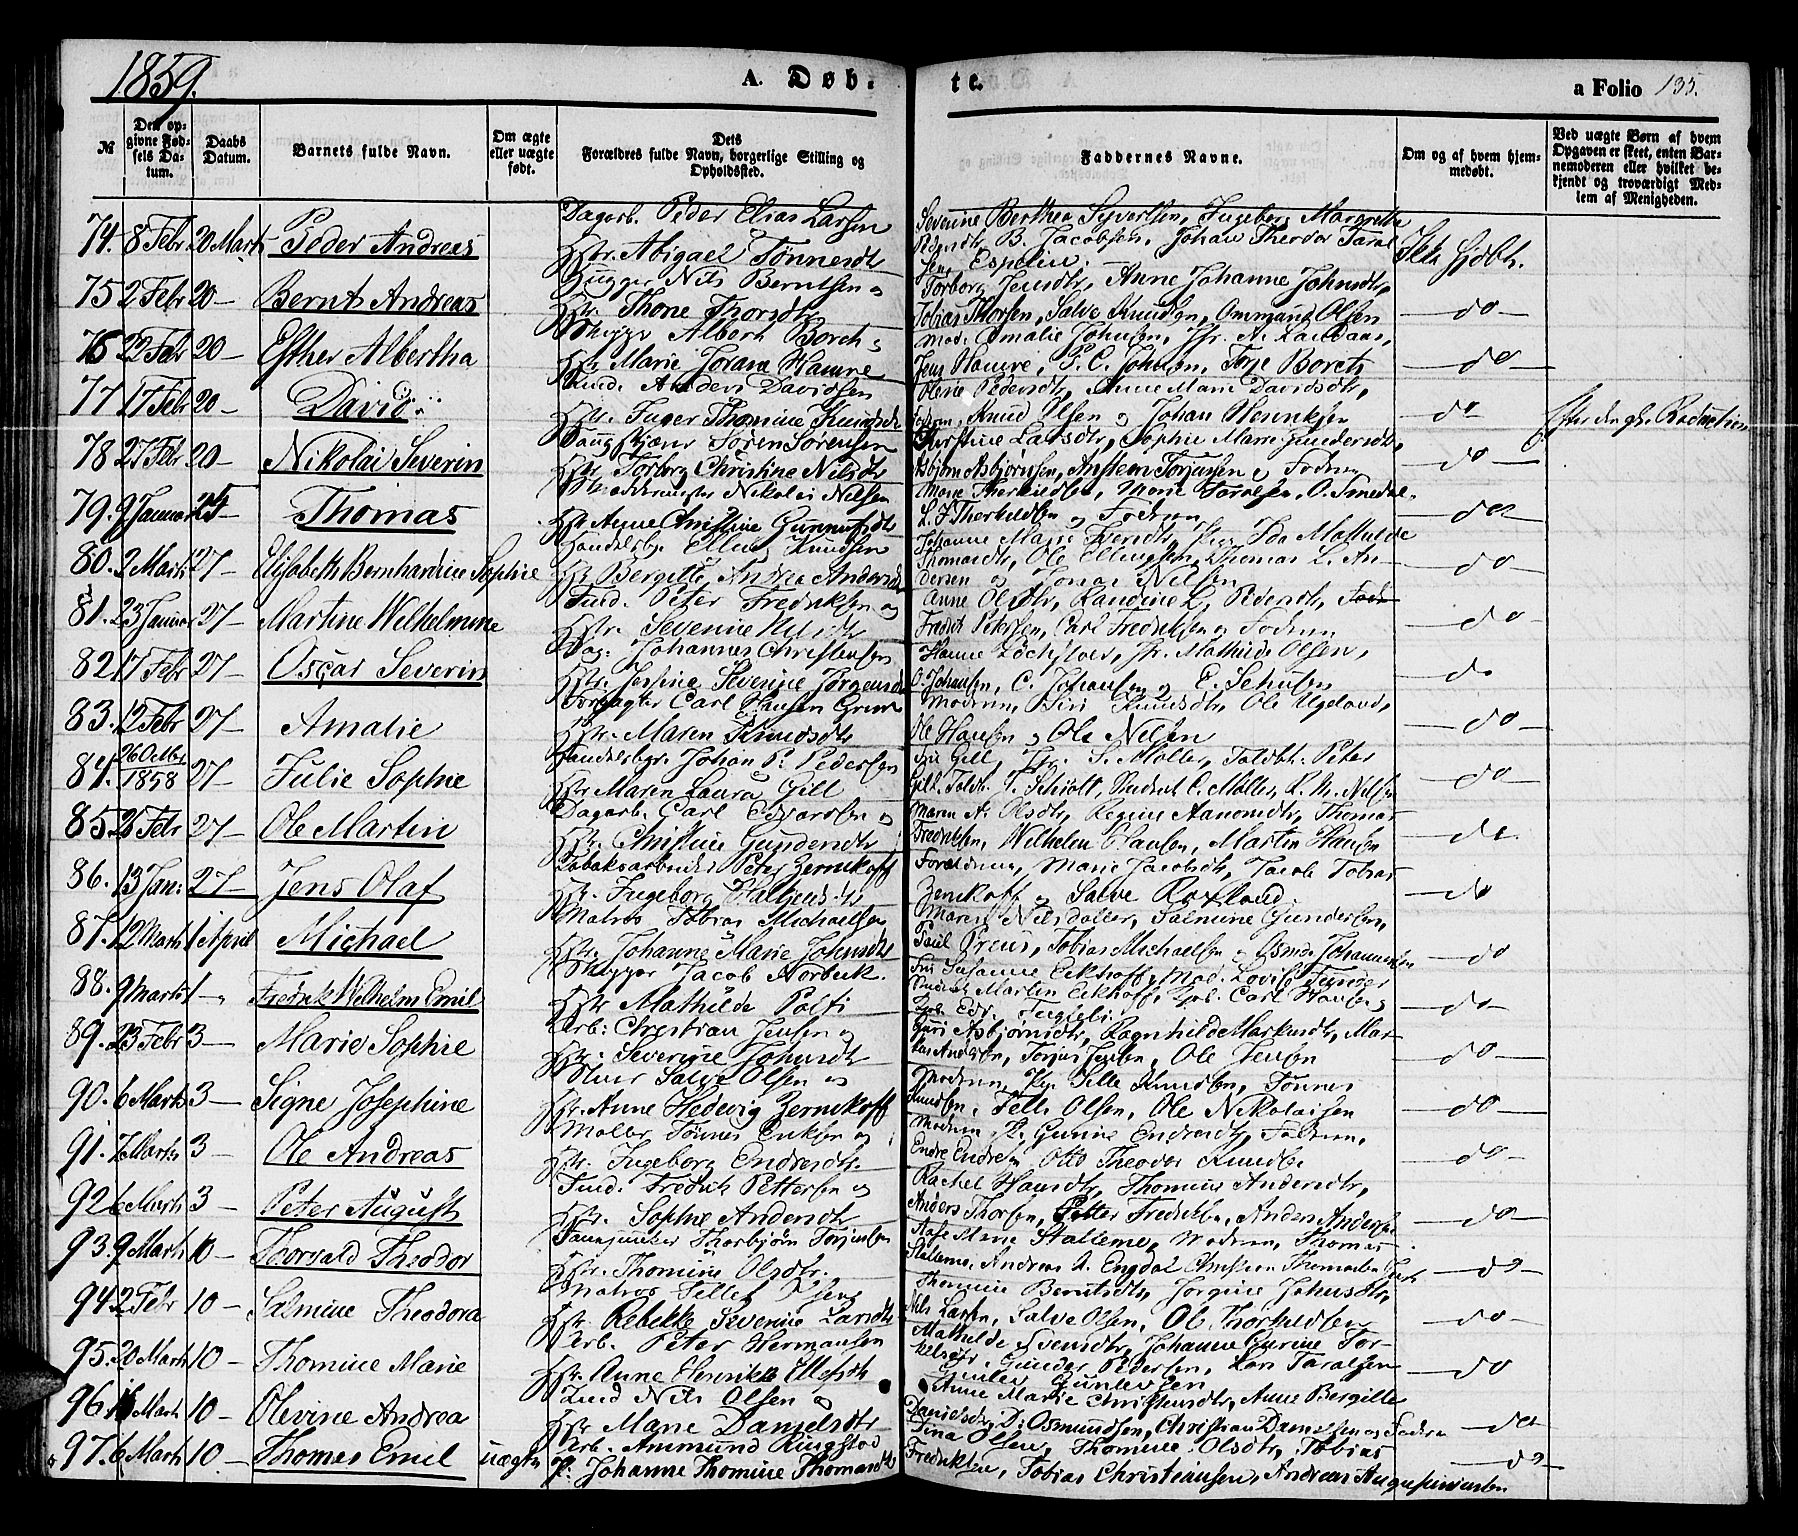 1859.
A. Døb-
te.
a Folio 135.
№
Den opgivne Fødsels Datum.
Daabs Datum.
Barnets fulde Navn.
Om ægte eller uægte født.
Dets Forældres fulde Navn, borgerlige Stilling og Opholdssted.
Faddernes Navne.
Om og af hvem hjemmedøbt.
Ved uægte Børn af hvem Opgaven er skeet, enten Barnemoderen eller hvilket bekjendt og troværdigt Medlem af Menigheden.
74. 8 Febr 20 Marts Peder Andreas
Dagarb. Peder Elias Larsen
Hstr. Abigael Tønnesdtr
Severine Berthea Syvertsen, Ingeborg Margrethe
Pedersdtr, B. Jacobsen, Johan Theodor Taral
sen, Espeline.
Ikke hjdbt.
75 2 Febr 20 — Bernt Andreas
Hugger Nils Berntsen og
Hstr. Thone Thorsdtr
Torborg Jensdtr, Anne Johanne Johnsdtr,
Tobias Thorsen, Salve Knudsen, Ommund Olsen
— do —
76 22 Febr 20 — Esther Albertha
Skipper Albert Borch
Hstr Marie Jorane Hamre
Mad. Amalie Johnsen, Jfr.
Jens Hamre, P. C. Johnsen, Terje Borch
— do
77 17 Febr 20 — David
Anders Davidsen
Hstr. Inger Thomine Knudsdtr
Olene Pedersdtr, Anne Marie Davidsdtr,
Fadren, Knud Olsen og Johan Henriksen
— do
78 27 Febr 20 — Nikolai Severin
Søren Sørensen
Hstr Torborg Christine Nilsdtr
Kirstine Larsdtr, Sophie Marie Gundersdtr,
Asbjørn Asbjørnsen, Anstein Torjussen og Fadren
— do —
79. 9 Januar 25 — Thomas
Nikolai Nilsen
Hstr Anne Christine Gunnufsdtr
Marie Therkildsen, Marie Taralsen, O. Smedal
L. J. Therkildsen og Fadren
— do —
80. 2 Marts 27 — Elisabeth Bernhardine Sophie
Handelsbr. Elling Knudsen
Hst Bergitte Andrea Andersdtr
Johanne Marie Iversdtr, Pige Ida Mathilde
Thomasdtr, Ole Ellingsen, Thomas L. An
dersen og Jonas Nilsen
— do —
81. 23 Januar 27 — Martine Welhelmine
Inds. Peter Fredriksen og
Hstr. Severine Nilsdtr
Anne Olsdtr, Randine L. Pedersdtr,
Fredrik Petersen, Carl Fredriksen og Fadren
— do —
82 17 Febr 27 — Oscar Severin
Dag: Johannes Christensen
Hstr. Josfine Severine Jørgensdtr
Hanne Lochstoer, Jfr. Mathilde Olsen,
O. Johansen, C. Johansen og E. Schulsen
— do
83. 12 Febr 27 — Amalie
Forpagter Carl Hansen Grim
Hstr. Maren Knudsdtr
Modren, Siri Knudsdtr, Ole Ugeland,
Ole Hansen og Ole Nilsen
— do —
84. 26 1858 27 — Julie Sophie
Handelsbgr. Johan P. Pedersen
Hstr Maren Laura Gill
Fru Gill, Jfr. S. Møller, Toldbt. Peter
Gill, Toldb. T. Schiøtt, Student C. Møller, R. M. Nilsen
— do
85. 26 Febr 27 — Ole Martin
Dagarb. Carl Edvardsen og
Hstr. Christine Gundersdtr
Maren A. Olsdtr, Regine Aanonsdtr, Thomas
Fredriksen, Wilhelm Clausen, Martin Hansen
— do.
86. 13 Jan: 27 — Jens Olaf
Tobaksarbeider Peter Zernikoff
Hstr. Ingeborg
Forældrene, Marie Jacobsdtr, Jacob Tobias
Zernikoff og Salve Roxland.
— do
87. 12 Marts 1 April Michael
Matros Tobias Michaelsen
Hstr. Johanne Marie Johnsdtr
Maren Nilsdatter, Salmine Gundersen,
Poul Preus, Tobias Michaelsen og Osmd. Johannessen
— do
88. 9 Marts 1 — Fredrik Wilhelm Emil
Skipper Jacob Norbeck.
Hstr Mathilde Polfi
Fru Susanne Eckhoff, Mad. Lovise
Student Martin Eckhoff, Carl Hansen og
— do —
89. 23 Febr 3 — Marie Sophie
Arb: Christian Jensen og
Hstr. Severine Johnsdtr
Guri Asbjørnsdtr, Ragnhilde Markusdtr, Mar
kus Andersen, Torjus Jensen, Ole Jensen
— do —
90. 6 Marts 3 — Signe Josephine
Muur Salve Olsen og
Hstr. Anne Hedevig Zernikoff
Modren, Pige Sille Knudsen, Tønnes
Knudsen, Tellef Olsen, Ole Nikolaisen
— do —
91. 7 Marts 3 — Ole Andreas
Møller Tønnes Eriksen og
Hstr. Ingeborg Endresdtr.
Modren, P. Gurine Endresdtr, Fadren,
Endre Endresen, Otto Theodor Knudsen
— do —
92 6 Marts 3 — Peter August
Inds. Fredrik Pettersen og
Hstr. Sophie Andersdtr
Rachel Hansdtr, Thomine Andersdtr,
Anders Thorsen, Petter Fredriksen, Anders Andersen
— do —
93. 9 Marts 10 — Thorvald Theodor
Thorbjørn Torjussen
Hstr. Thomine Olsdtr.
Aase Marie Stalleme, Modren, Thomas
Stalleme, Andreas A. Engdal, Anstein Thomasen
— do —
94 2 Febr 10 — Salmine Theodora
Matros Tellef Olsen
Hstr. Rebekke Severine Larsdtr
Thomine Berntsdtr, Jørgine Johnsdtr,
Nils Larsen, Salve Olsen, Ole Thorkildsen
— do —
95. 20 Marts 10 — Thomine Marie
Arb. Peter Hermansen
Hstr. Anne Henrikke Olsdtr
Mathilde Svensdtr, Johanne Gurine Tor
kelsdtr. Gunder Pedersen, Lars Taralsen
Gunder Gundersen
— do
96. 16 Marts 10 — Olevine Andrea
Inds Nils Olsen og
Hstr Marie Danielsdtr
Anne Marie Christensdtr, Anne Bergitte
Danielsdtr, D. Osmundsen, Christian Danielsen og Fadren
— do
97. 6 Marts 10 — Thomas Emil uægte
Arb. Ammund Ringstad
P. Johanne Thomine Thomasdtr
Tina Olsen, Thomine Olsdtr, Tobias
Fredriksen, Tobias Christiansen, Andreas Augustinussen
— do —